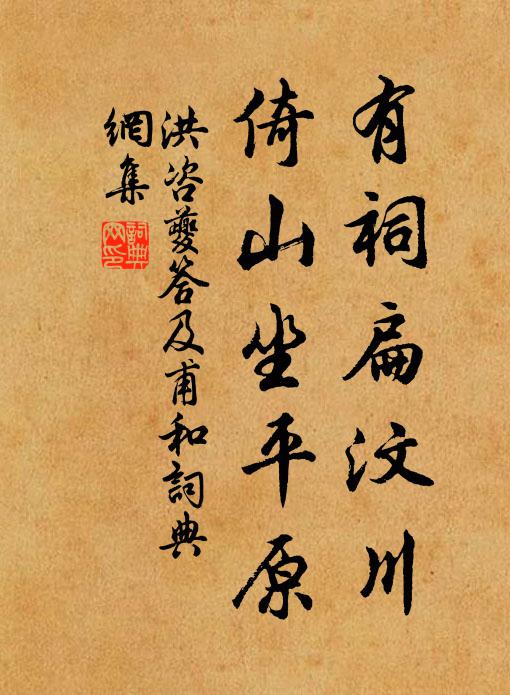 有祠扁汶川
倚山坐平原
洪咨夔答及甫和詞典
網集
詞典
网印